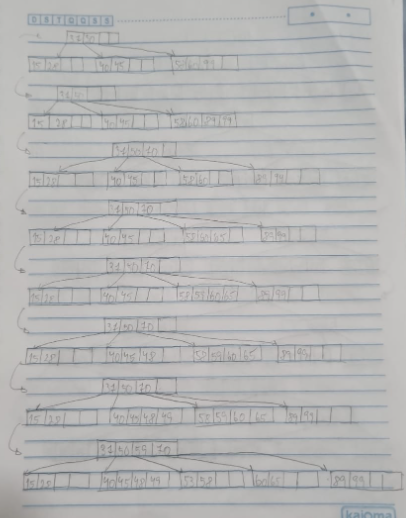 D S T Q Q S S
37 50
15 28 40 45 52 60 99
37 50
15 28 40 45 52 60 89 99
37 50 70
15 28 40 45 52 60 89 99
37 50 70
15 28 40 45 52 60 65 89 99
37 50 70
15 28 40 45 52 59 60 65 89 99
37 50 70
15 28 40 45 48 52 59 60 65 89 99
37 50 70
15 28 40 45 48 49 52 59 60 65 89 99
37 50 59 70
40 45 48 49 60 65 89 99
kajoma